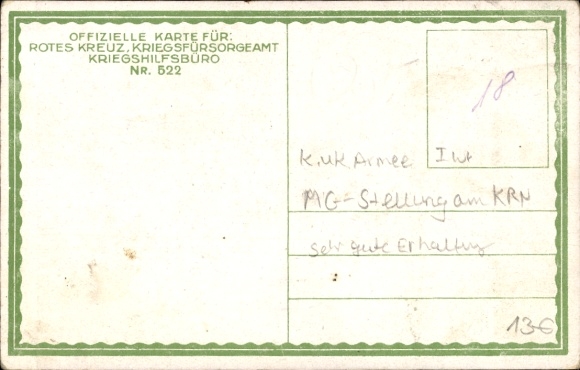 OFFIZIELLE KARTE FÜR:
ROTES KREUZ, KRIEGSFÜRSORGEAMT
KRIEGSHILFSBÜRO
NR. 522
18
K.u.K Armee I WK
MG-Stellung am KRN
Sehr gute Erhaltung
13€